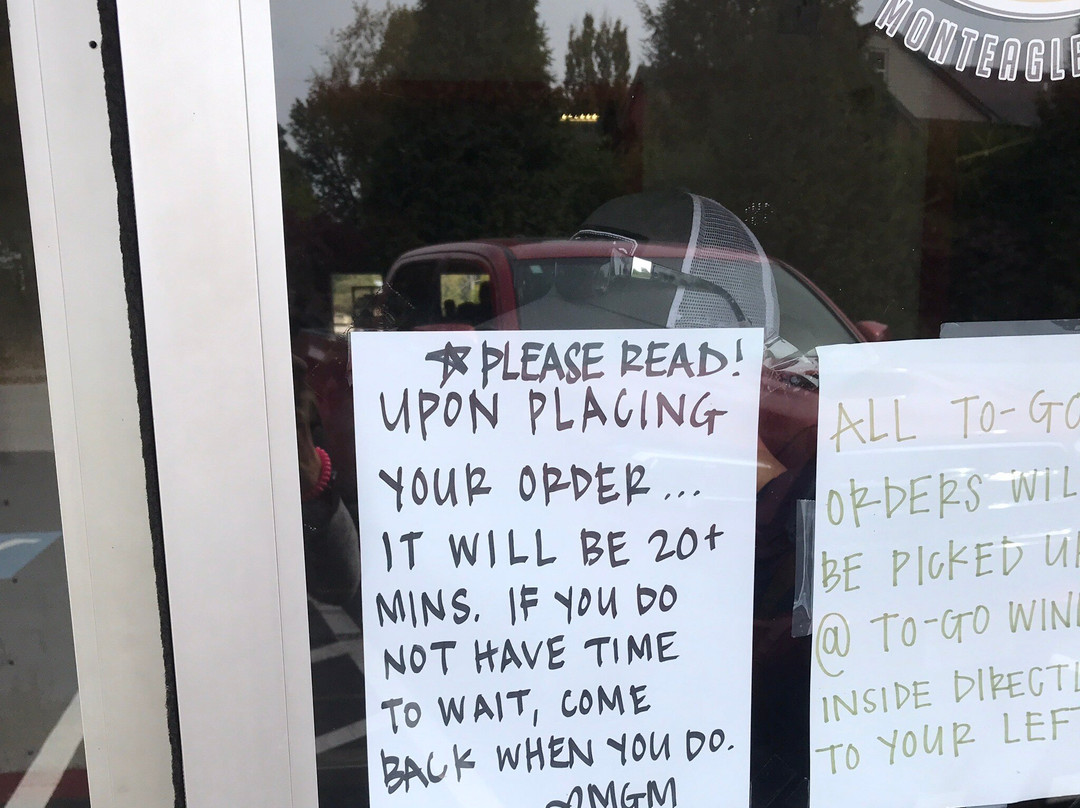 MONTEAGLE
☆ PLEASE READ!
UPON PLACING
YOUR ORDER...
IT WILL BE 20+
MINS. IF YOU DO
NOT HAVE TIME
TO WAIT, COME
BACK WHEN YOU DO.
MGM
ALL TO-GO
ORDERS WIL
BE PICKED U
@ TO-GO WIN
INSIDE DIRECTL
TO YOUR LEFT